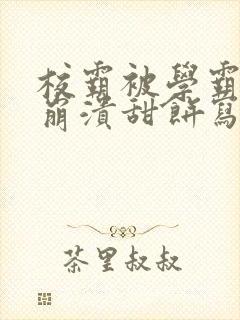 校霸被學霸
崩潰甜餅寫
茶里叔叔